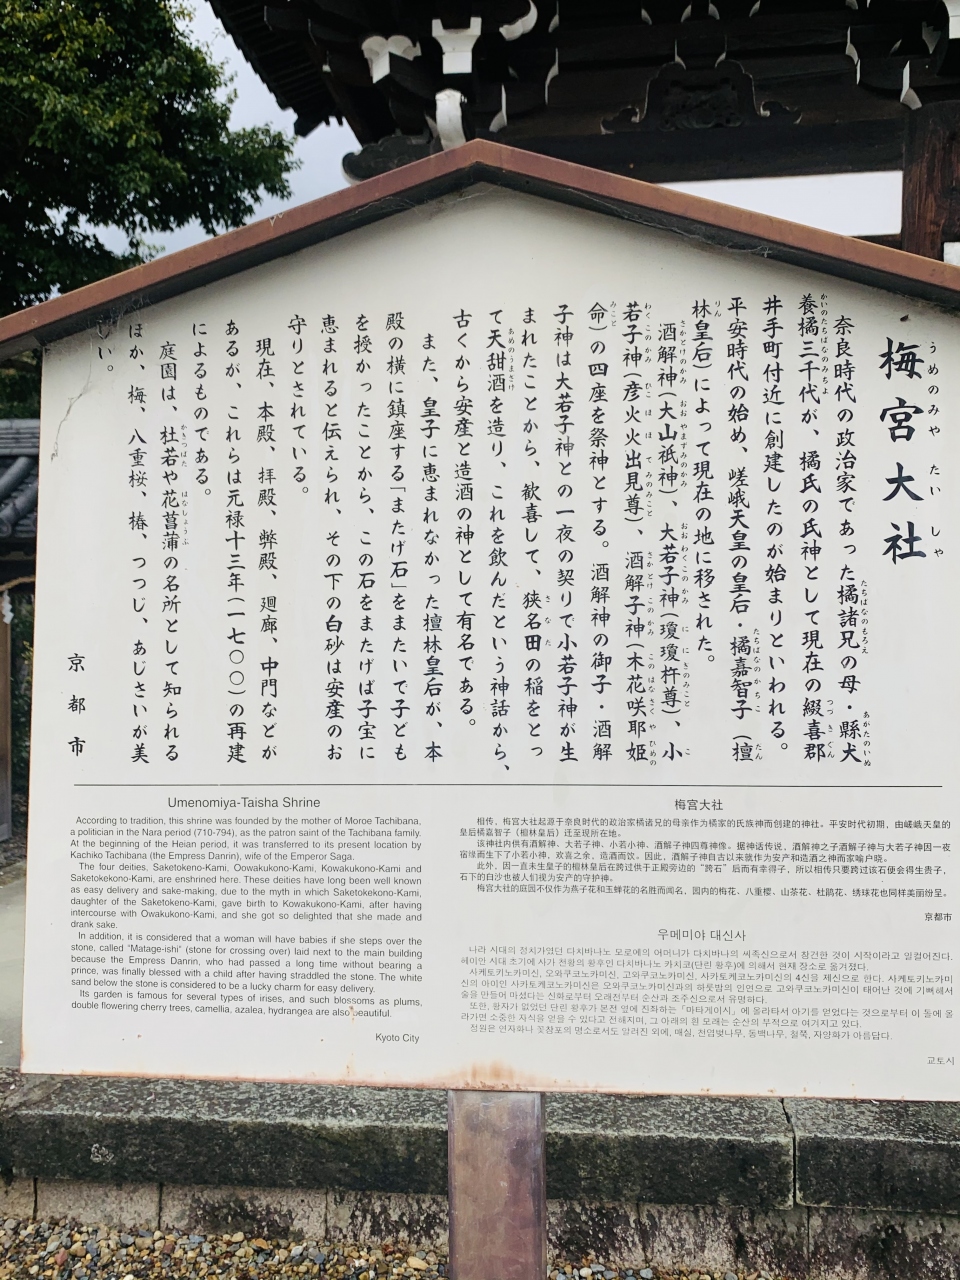 梅宮大社
うめのみや たいしゃ
奈良時代の政治家であった橘諸兄の母・縣犬
養橘三千代が、橘氏の氏神として現在の綴喜郡
井手町付近に創建したのが始まりといわれる。
平安時代の始め、嵯峨天皇の皇后・橘嘉智子（檀
林皇后）によって現在の地に移された。
酒解神（大山祇神）、大若子神（瓊瓊杵尊）、小
若子神（彦火火出見尊）、酒解子神（木花咲耶姫
命）の四座を祭神とする。酒解神の御子・酒解
子神は大若子神との一夜の契りで小若子神が生
まれたことから、歓喜して、狭名田の稲をとっ
て天甜酒を造り、これを飲んだという神話から、
古くから安産と造酒の神として有名である。
また、皇子に恵まれなかった檀林皇后が、本
殿の横に鎮座する「またげ石」をまたいで子ども
を授かったことから、この石をまたげば子宝に
恵まれると伝えられ、その下の白砂は安産のお
守りとされている。
現在、本殿、拝殿、弊殿、廻廊、中門などが
あるが、これらは元禄十三年（一七〇〇）の再建
によるものである。
庭園は、杜若や花菖蒲の名所として知られる
ほか、梅、八重桜、椿、つつじ、あじさいが美
しい。
京都市
Umenomiya-Taisha Shrine
According to tradition, this shrine was founded by the mother of Moroe Tachibana,
a politician in the Nara period (710-794), as the patron saint of the Tachibana family.
At the beginning of the Heian period, it was transferred to its present location by
Kachiko Tachibana (the Empress Danrin), wife of the Emperor Saga.
The four deities, Saketokeno-Kami, Oowakukono-Kami, Kowakukono-Kami and
Saketokekono-Kami, are enshrined here. These deities have long been well known
as easy delivery and sake-making, due to the myth in which Saketokekono-Kami,
daughter of the Saketokeno-Kami, gave birth to Kowakukono-Kami, after having
intercourse with Owakukono-Kami, and she got so delighted that she made and
drank sake.
In addition, it is considered that a woman will have babies if she steps over the
stone, called “Matage-ishi” (stone for crossing over) laid next to the main building
because the Empress Danrin, who had passed a long time without bearing a
prince, was finally blessed with a child after having straddled the stone. The white
sand below the stone is considered to be a lucky charm for easy delivery.
Its garden is famous for several types of irises, and such blossoms as plums,
double flowering cherry trees, camellia, azalea, hydrangea are also beautiful.
Kyoto City
梅宫大社
相传，梅宫大社起源于奈良时代的政治家橘诸兄的母亲作为橘家的氏族神而创建的神社。平安时代初期，由嵯峨天皇的
皇后橘嘉智子（檀林皇后）迁至现所在地。
该神社内供有酒解神、大若子神、小若小神、酒解子神四尊神像。据神话传说，酒解神之子酒解子神与大若子神因一夜
宿缘而生下了小若小神，欢喜之余，造酒而饮。因此，酒解子神自古以来就作为安产和造酒之神而家喻户晓。
此外，因一直未生皇子的檀林皇后在跨过供于正殿旁边的“跨石”后而有幸得子，所以相传只要跨过该石便会得生贵子，
石下的白沙也被人们视为安产的守护神。
梅宫大社的庭园不仅作为燕子花和玉蝉花的名胜而闻名，园内的梅花、八重樱、山茶花、杜鹃花、绣球花也同样美丽纷呈。
京都市
우메미야 대신사
나라 시대의 정치가였던 다치바나노 모로에의 어머니가 다치바나의 씨족신으로서 창건한 것이 시작이라고 일컬어진다.
헤이안 시대 초기에 사가 천황의 황후인 다치바나노 카치코(단린 황후)에 의해서 현재 장소로 옮겨졌다.
사케토케노카미신, 오와쿠코노카미신, 고와쿠코노카미신, 사카토케코노카미신의 4신을 제신으로 한다. 사케토케노카미
신의 아이인 사카토케코노카미신은 오와쿠코노카미신과의 하룻밤의 인연으로 고와쿠코노카미신이 태어난 것에 기뻐해서
술을 만들어 마셨다는 신화로부터 오래전부터 순산과 조주신으로서 유명하다.
또한, 황자가 없었던 단린 황후가 본전 앞에 진좌하는 「마타게이시」에 올라타서 아기를 얻었다는 것으로부터 이 돌에 올
라가면 소중한 자식을 얻을 수 있다고 전해지며, 그 아래의 흰 모래는 순산의 부적으로 여기지고 있다.
정원은 연자화나 꽃창포의 명소로서도 알려진 외에, 매실, 천엽벚나무, 동백나무, 철쭉, 자양화가 아름답다.
교토시